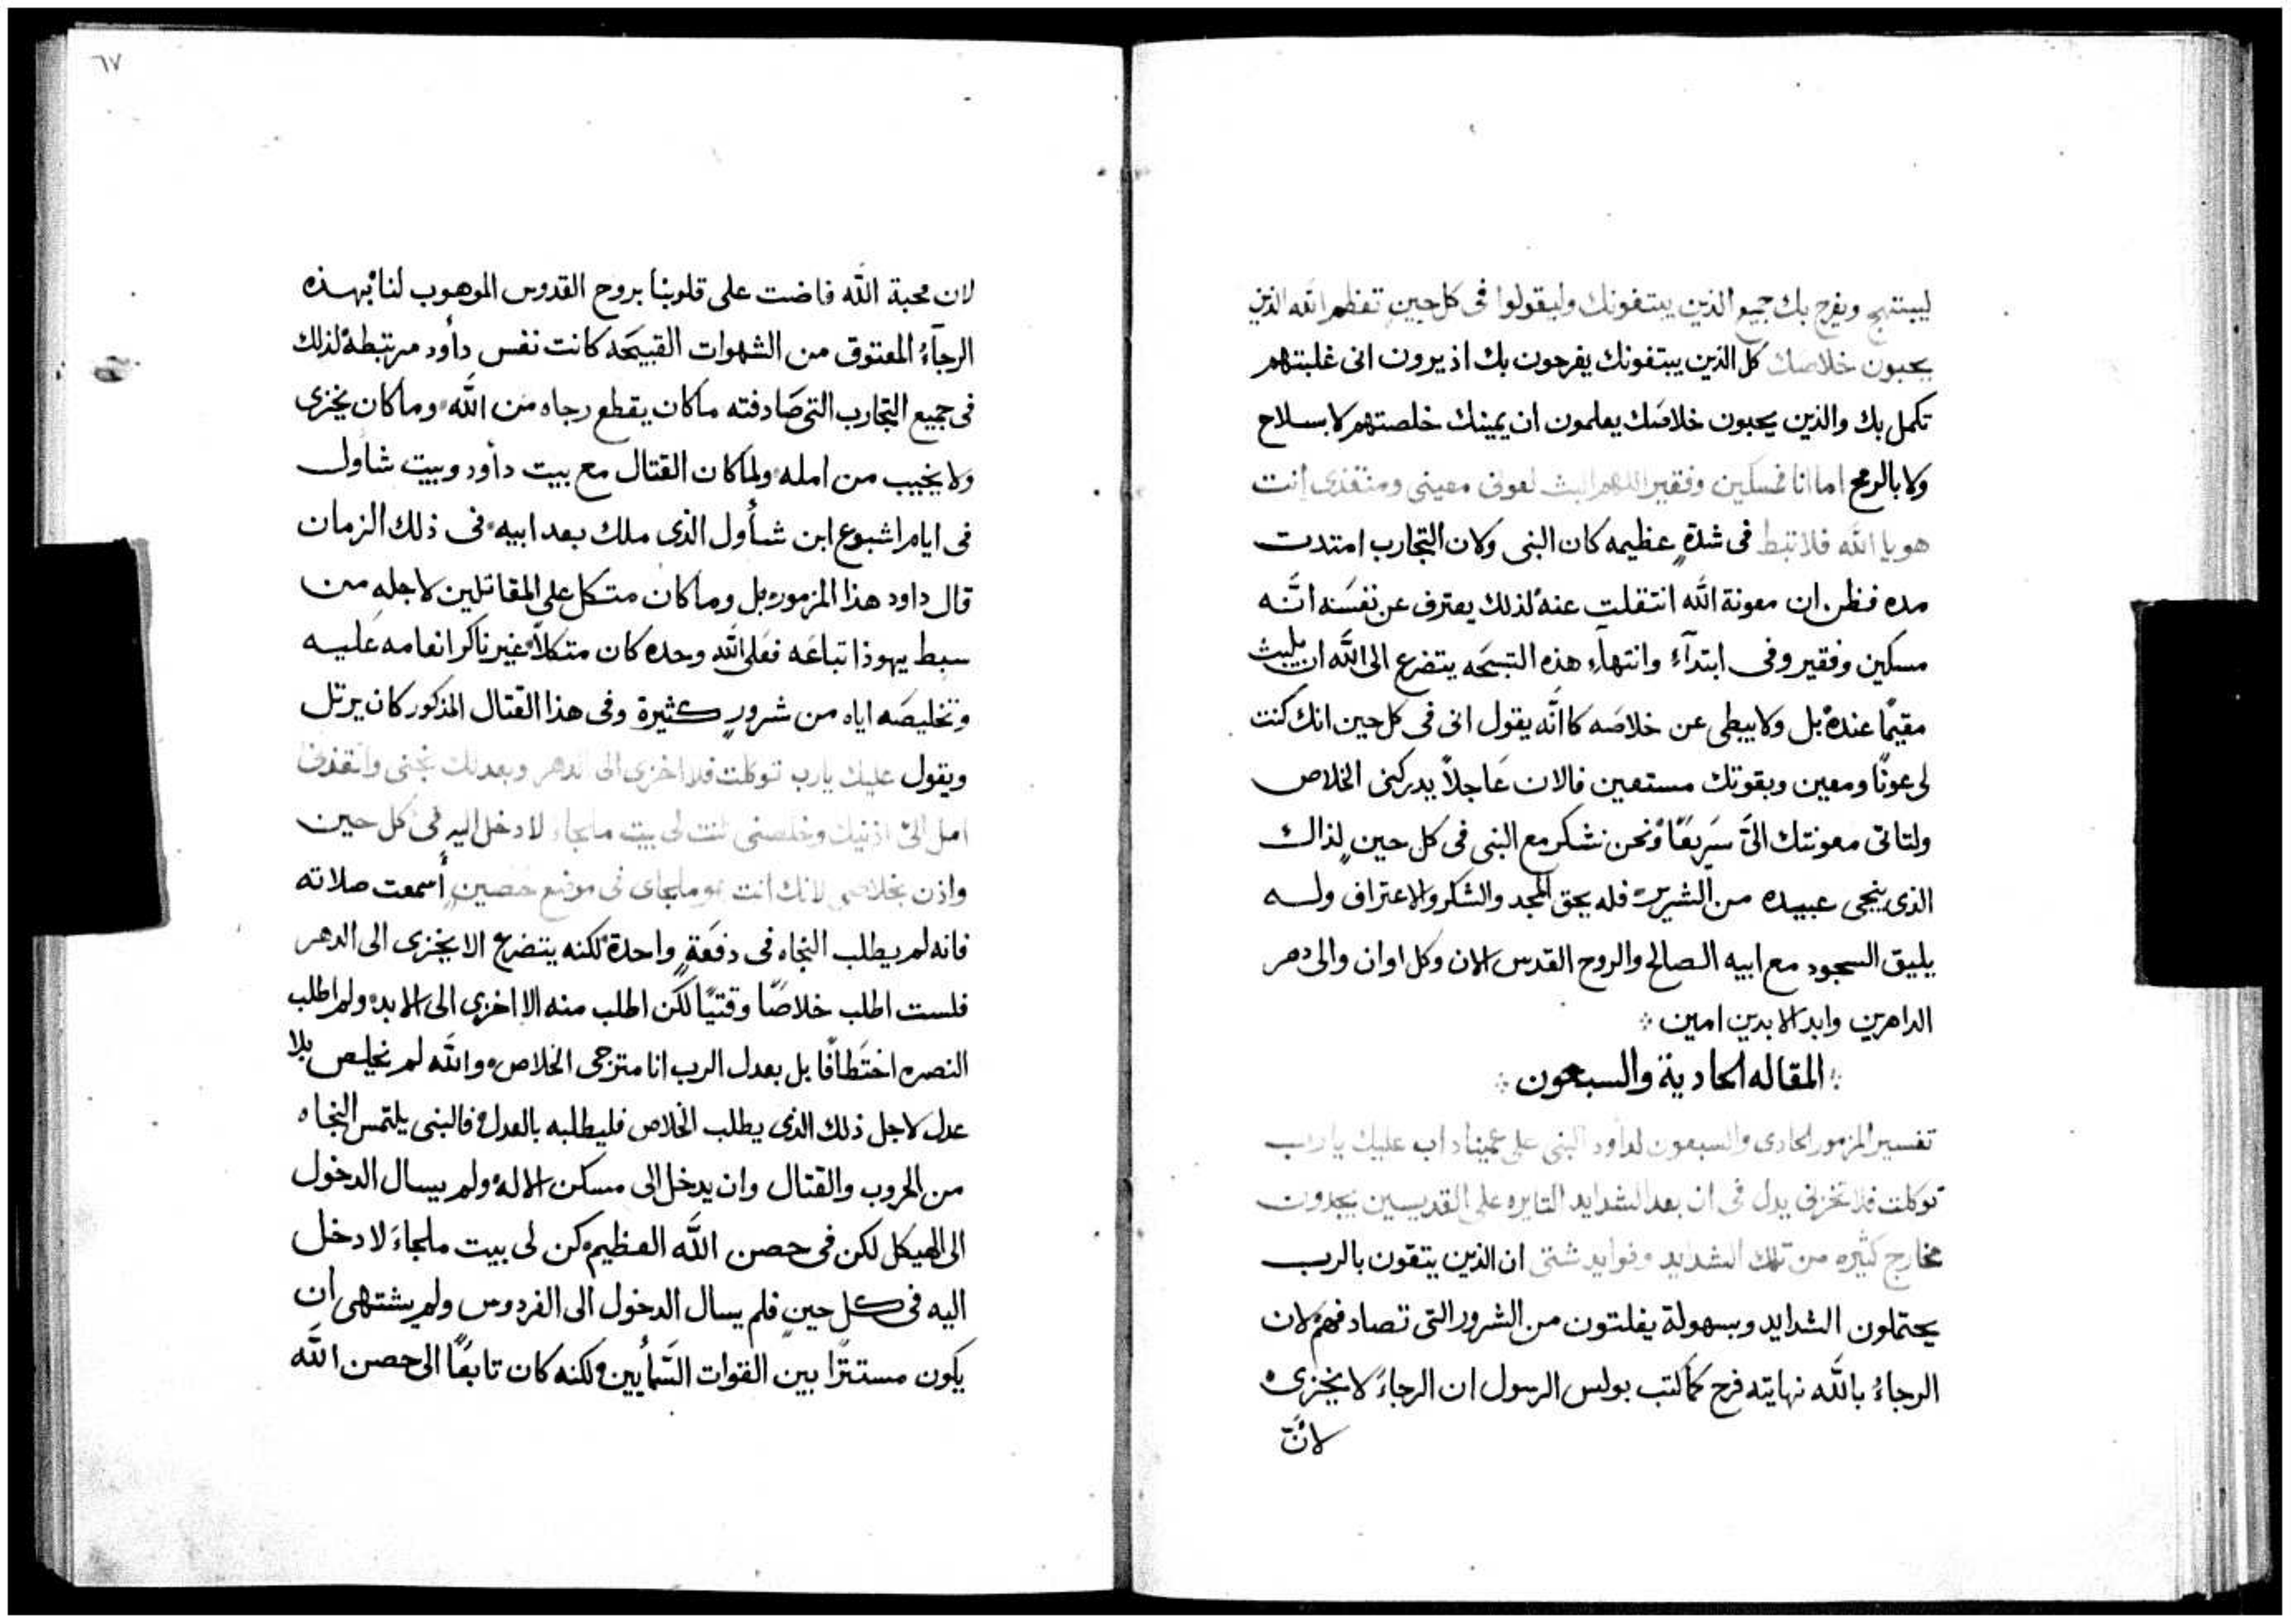 ليبتهج ويفرح بك جميع الذين يبتغونك وليقولوا فى كل حين تعظم الله الذين
يحبون خلاصك كل الذين يبتغونك يفرحون بك اذ يرون انى غلبتهم
تكمل بك والذين يحبون خلاصك يعلمون ان يمينك خلصتهم لا بسلاح
ولا بالرمح اما انا فمسكين وفقير اللهم البث لعونى معينى ومنقذى انت
هو يا الله فلا تبط فى شدةٍ عظيمه كان النبى ولان التجارب امتدت
مده فظن ان معونة الله انتقلت عنه لذلك يعترف عن نفسه انّه
مسكين وفقير وفى ابتدآء وانتهآء هذه التسبحه يتضرع الى الله ان يلبث
مقيمًا عنده بل ولا يبطى عن خلاصه كانّه يقول انى فى كل حين انك كنت
لى عونًا ومعين وبقوتك مستعين فالان عاجلاً يدركنى الخلاص
ولتاتى معونتك الىّ سريعًا ونحن نشكر مع النبى فى كل حينٍ لذاك
الذى ينجى عبيده من الشرير فله يحق المجد والشكر والاعتراف وله
يليق السجود مع ابيه الصالح والروح القدس الان وكل اوان والى دهر
الداهرين وابد الابدين امين
المقاله الحادية والسبعون
تفسير المزمور الحادى والسبعون لداود النبى على عميناداب عليك يا رب
توكلت فلا تخزنى يدل فى ان بعد الشدايد الثايره على القديسين يجدون
مخارج كثيره من تلك الشدايد وفوايد شتى ان الذين يتقون بالرب
يحتملون الشدايد وبسهولة يفلتون من الشرور التى تصادفهم لان
الرجاءُ بالله نهايته فرح كما كتب بولس الرسول ان الرجاءُ لا يخزى
لانّ
٦٧
لان محبة الله فاضت على قلوبنا بروح القدوس الموهوب لنا بهذه
الرجآءُ المعتوق من الشهوات القبيحه كانت نفس داود مرتبطة لذلك
فى جميع التجارب التى صادفته ما كان يقطع رجاه من الله وما كان يخزى
ولا يخيب من امله ولما كان القتال مع بيت داود وبيت شاول
فى ايام اشبوع ابن شأول الذى ملك بعد ابيه فى ذلك الزمان
قال داود هذا المزمور بل وما كان متكل على المقاتلين لاجله من
سبط يهوذا تباعه فعلى الله وحده كان متكلاً غير ناكر انعامه عليه
وتخليصه اياه من شرورٍ كثيرة وفى هذا القتال المذكور كان يرتل
ويقول عليك يارب توكلت فلا اخزى الى الدهر وبعدلك نجنى وانقذنى
امل الىّ اذنيك وخلصنى كنت لى بيت ملجاءَ لادخل اليه فى كل حين
واذن بخلاصى لانك انت هو ملجاى فى موضع حصينٍ أسمعت صلاته
فانه لم يطلب النجاه فى دفعَةٍ واحدة لكنه يتضرع الا يخزى الى الدهر
فلست اطلب خلاصًا وقتيًا لكن اطلب منه الا اخزى الى الابد ولم اطلب
النصره اختطافًا بل بعدل الرب انا مترجى الخلاص والله لم يخلص بلا
عدل لاجل ذلك الذى يطلب الخلاص فليطلبه بالعدل فالنبى يلتمس النجاه
من الحروب والقتال وان يدخل الى مسكن الاله ولم يسال الدخول
الى الهيكل لكن فى حصن الله العظيم كن لى بيت ملجاءَ لادخل
اليه فى كل حينٍ فلم يسال الدخول الى الفردوس ولم يشتهى ان
يكون مستترًا بين القوات السمأيين لكنه كان تابعًا الى حصن الله